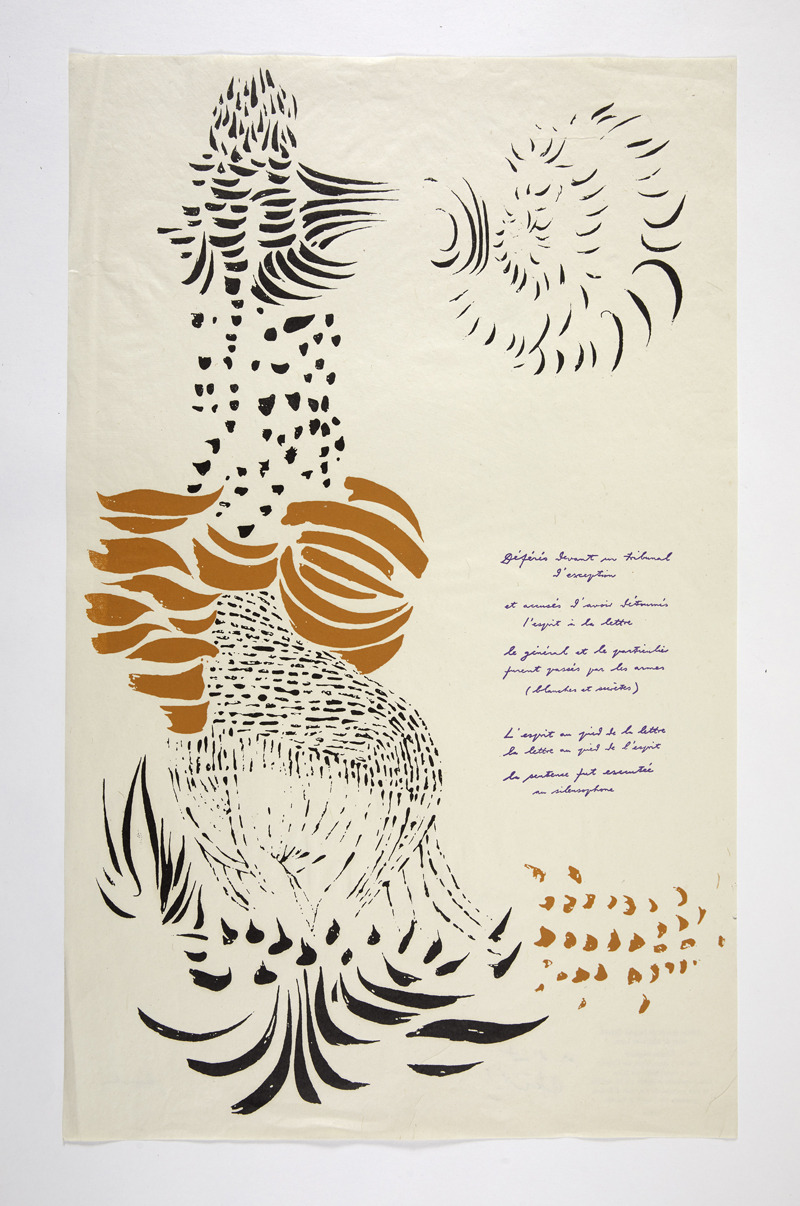 Déférés devant un tribunal
d'exception
et accusés d'avoir détourné
l'esprit à la lettre
le général et le particulier
furent passés par les armes
(blanches et secrètes)
L'esprit au pied de la lettre
la lettre au pied de l'esprit
la sentence fut exécutée
au silensophone